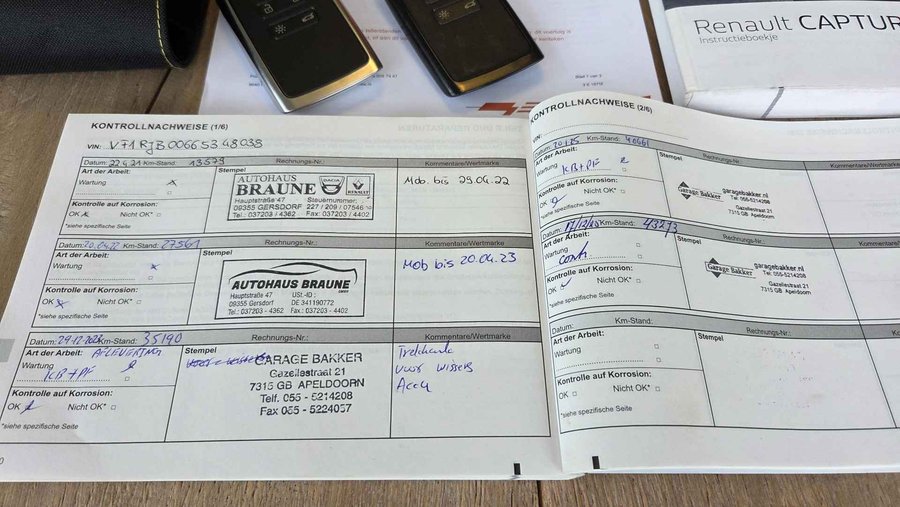 Renault CAPTUR
Instructieboekje
KONTROLLNACHWEISE (1/6)
VIN:
Datum: 22.4.21 Km-Stand: 13579 Rechnungs-Nr.: Kommentare/Wertmarke
Art der Arbeit:
Wartung
Kontrolle auf Korrosion:
OK Nicht OK*
*siehe spezifische Seite
Stempel
AUTOHAUS
BRAUNE
DACIA
RENAULT
Hauptstraße 47 Steuernummer:
09355 GERSDORF 227 / 209 / 07546
Tel.: 037203 / 4362 Fax: 037203 / 4402
Mob. bis 29.04.22
Datum: 20.04.22 Km-Stand: 27561 Rechnungs-Nr.: Kommentare/Wertmarke
Art der Arbeit:
Wartung
Kontrolle auf Korrosion:
OK Nicht OK*
*siehe spezifische Seite
Stempel
AUTOHAUS BRAUNE
GMBH
Hauptstraße 47 USt.-ID :
09355 Gersdorf DE 341190772
Tel.: 037203 - 4362 Fax.: 037203 - 4402
Mob bis 20.04.23
Datum: Km-Stand: 35190 Rechnungs-Nr.: Kommentare/Wertmarke
Art der Arbeit: AFLEVERING
Wartung KB+PF
Kontrolle auf Korrosion:
OK Nicht OK*
*siehe spezifische Seite
Stempel
GARAGE BAKKER
Gazellestraat 21
7315 GB APELDOORN
Telf. 055 - 5214208
Fax 055 - 5224057
voor wissers
KONTROLLNACHWEISE (2/6)
VIN:
Datum: Km-Stand: 40661 Rechnungs-Nr.:
Art der Arbeit:
Wartung KB+PF
Kontrolle auf Korrosion:
OK Nicht OK*
*siehe spezifische Seite
Stempel
Garage Bakker
garagebakker.nl
Tel: 055-5214208
Gazellestraat 21
7315 GB Apeldoorn
Datum: Km-Stand: 43273 Rechnungs-Nr.:
Art der Arbeit:
Wartung
Kontrolle auf Korrosion:
OK Nicht OK*
*siehe spezifische Seite
Stempel
Garage Bakker
garagebakker.nl
Tel: 055-5214208
Gazellestraat 21
7315 GB Apeldoorn
Datum: Km-Stand: Rechnungs-Nr.:
Art der Arbeit:
Wartung
Kontrolle auf Korrosion:
OK Nicht OK*
*siehe spezifische Seite
Stempel